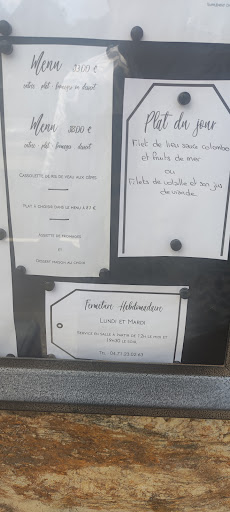 Menu 33.00 €
entrée plat fromage ou dessert
Menu 38.00 €
entrée plat fromage dessert
Cassolette de ris de veau aux cèpes
Plat à choisir dans le menu à 33 €
Assiette de fromages
et
Dessert maison au choix
Plat du jour
Filet de lieu sauce colombo
et fruits de mer
ou
Filets de volaille et son jus
de viande
Fermeture Hebdomadaire
Lundi et Mardi
Service en salle à partir de 12h le midi et
19h30 le soir